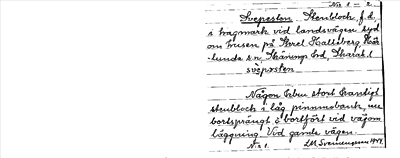 No 1 - 2.
Svepesten. Stenblock f.d.
i hagmark vid landsvägen syd
om husen på Axel Kalleberg, Här
lunda s:n, Skånings hd, Skarab. l
svepesten
Någon 2 bm stort kantigt
stenblock i låg pinnmobank, nu
bortsprängt o bortfört vid vägom
läggning. Vid gamla vägen.
No 1. LM Svennungsson 1944.